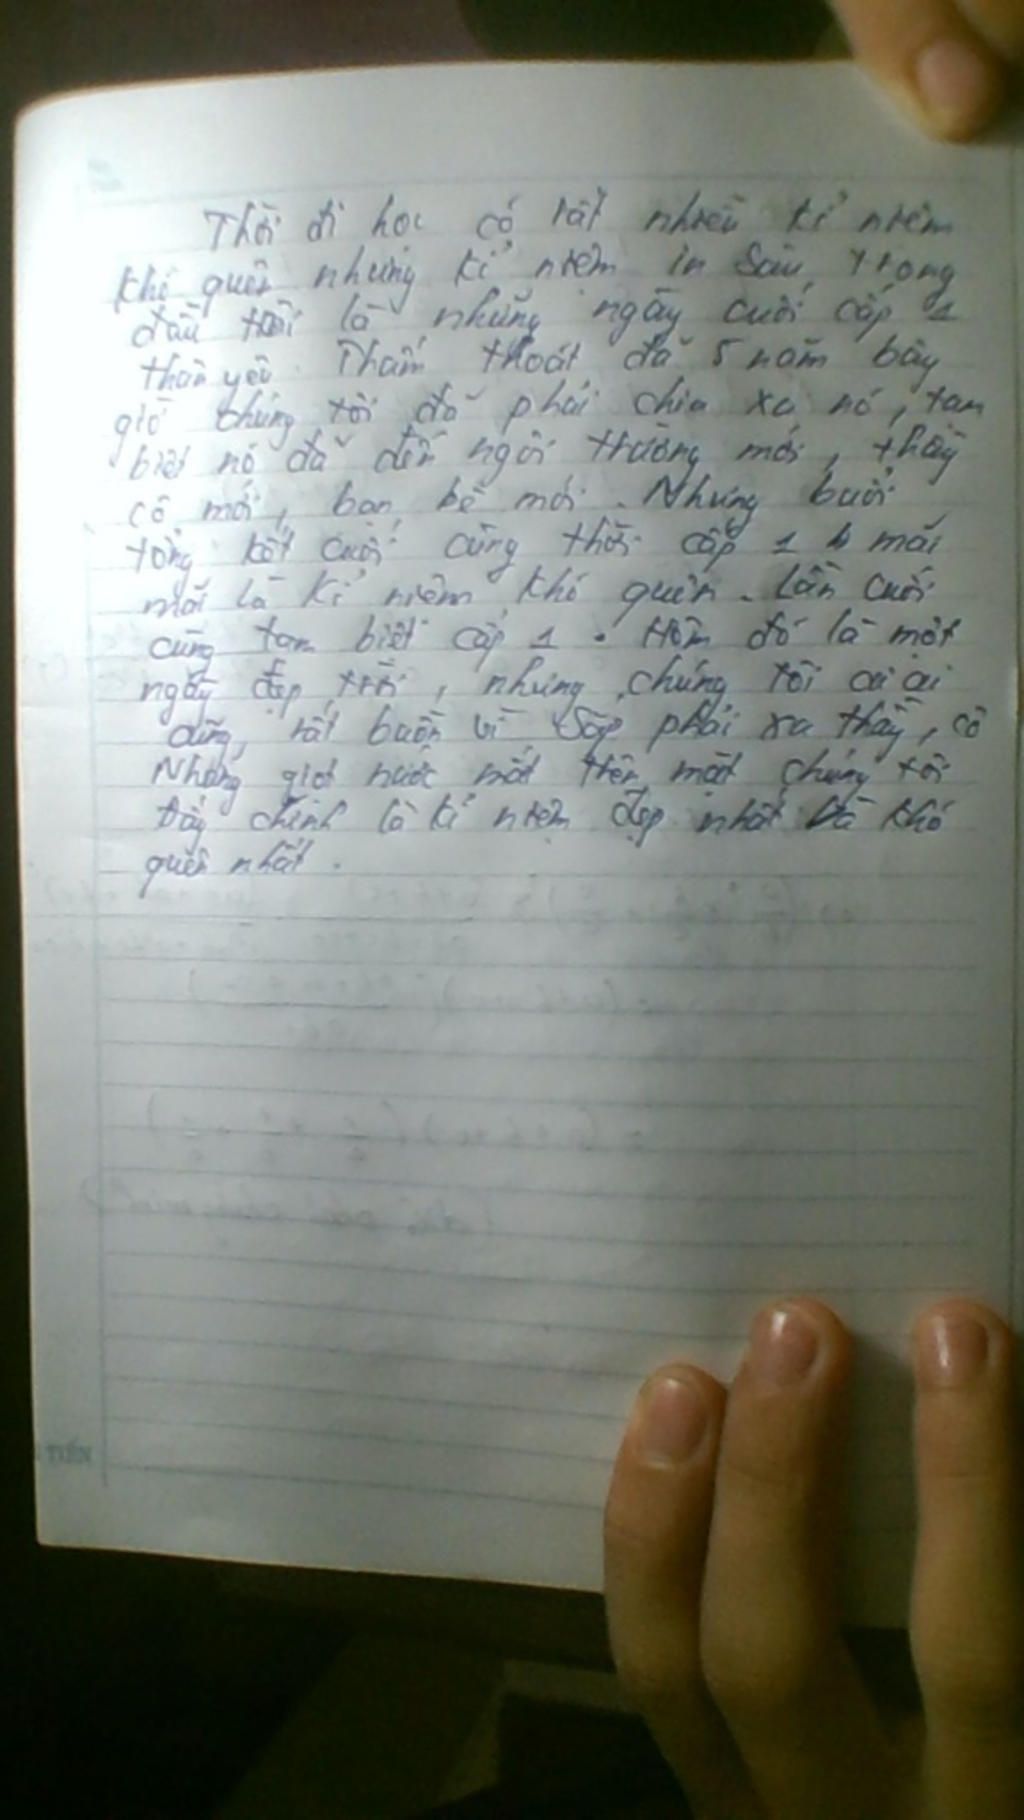 Thời đi học có rất nhiều kỉ niệm
khó quên nhưng kỉ niệm in sâu trong
đầu tôi là những ngày cuối cấp 1
thân yêu. Thấm thoát đã 5 năm bây
giờ chúng tôi đã phải chia xa nó, tạm
biệt nó đã đến ngôi trường mới, thầy
cô mới, bạn bè mới. Nhưng buổi
tổng kết cuối cùng thời cấp 1 mãi
mãi là kỉ niệm khó quên. Lần cuối
cùng tạm biệt cấp 1. Hôm đó là một
ngày đẹp trời, nhưng chúng tôi ai ai
cũng rất buồn vì sắp phải xa thầy, cô
Những giọt nước mắt trên mặt chúng tôi
đấy chính là kỉ niệm đẹp nhất và khó
quên nhất.
TIẾN